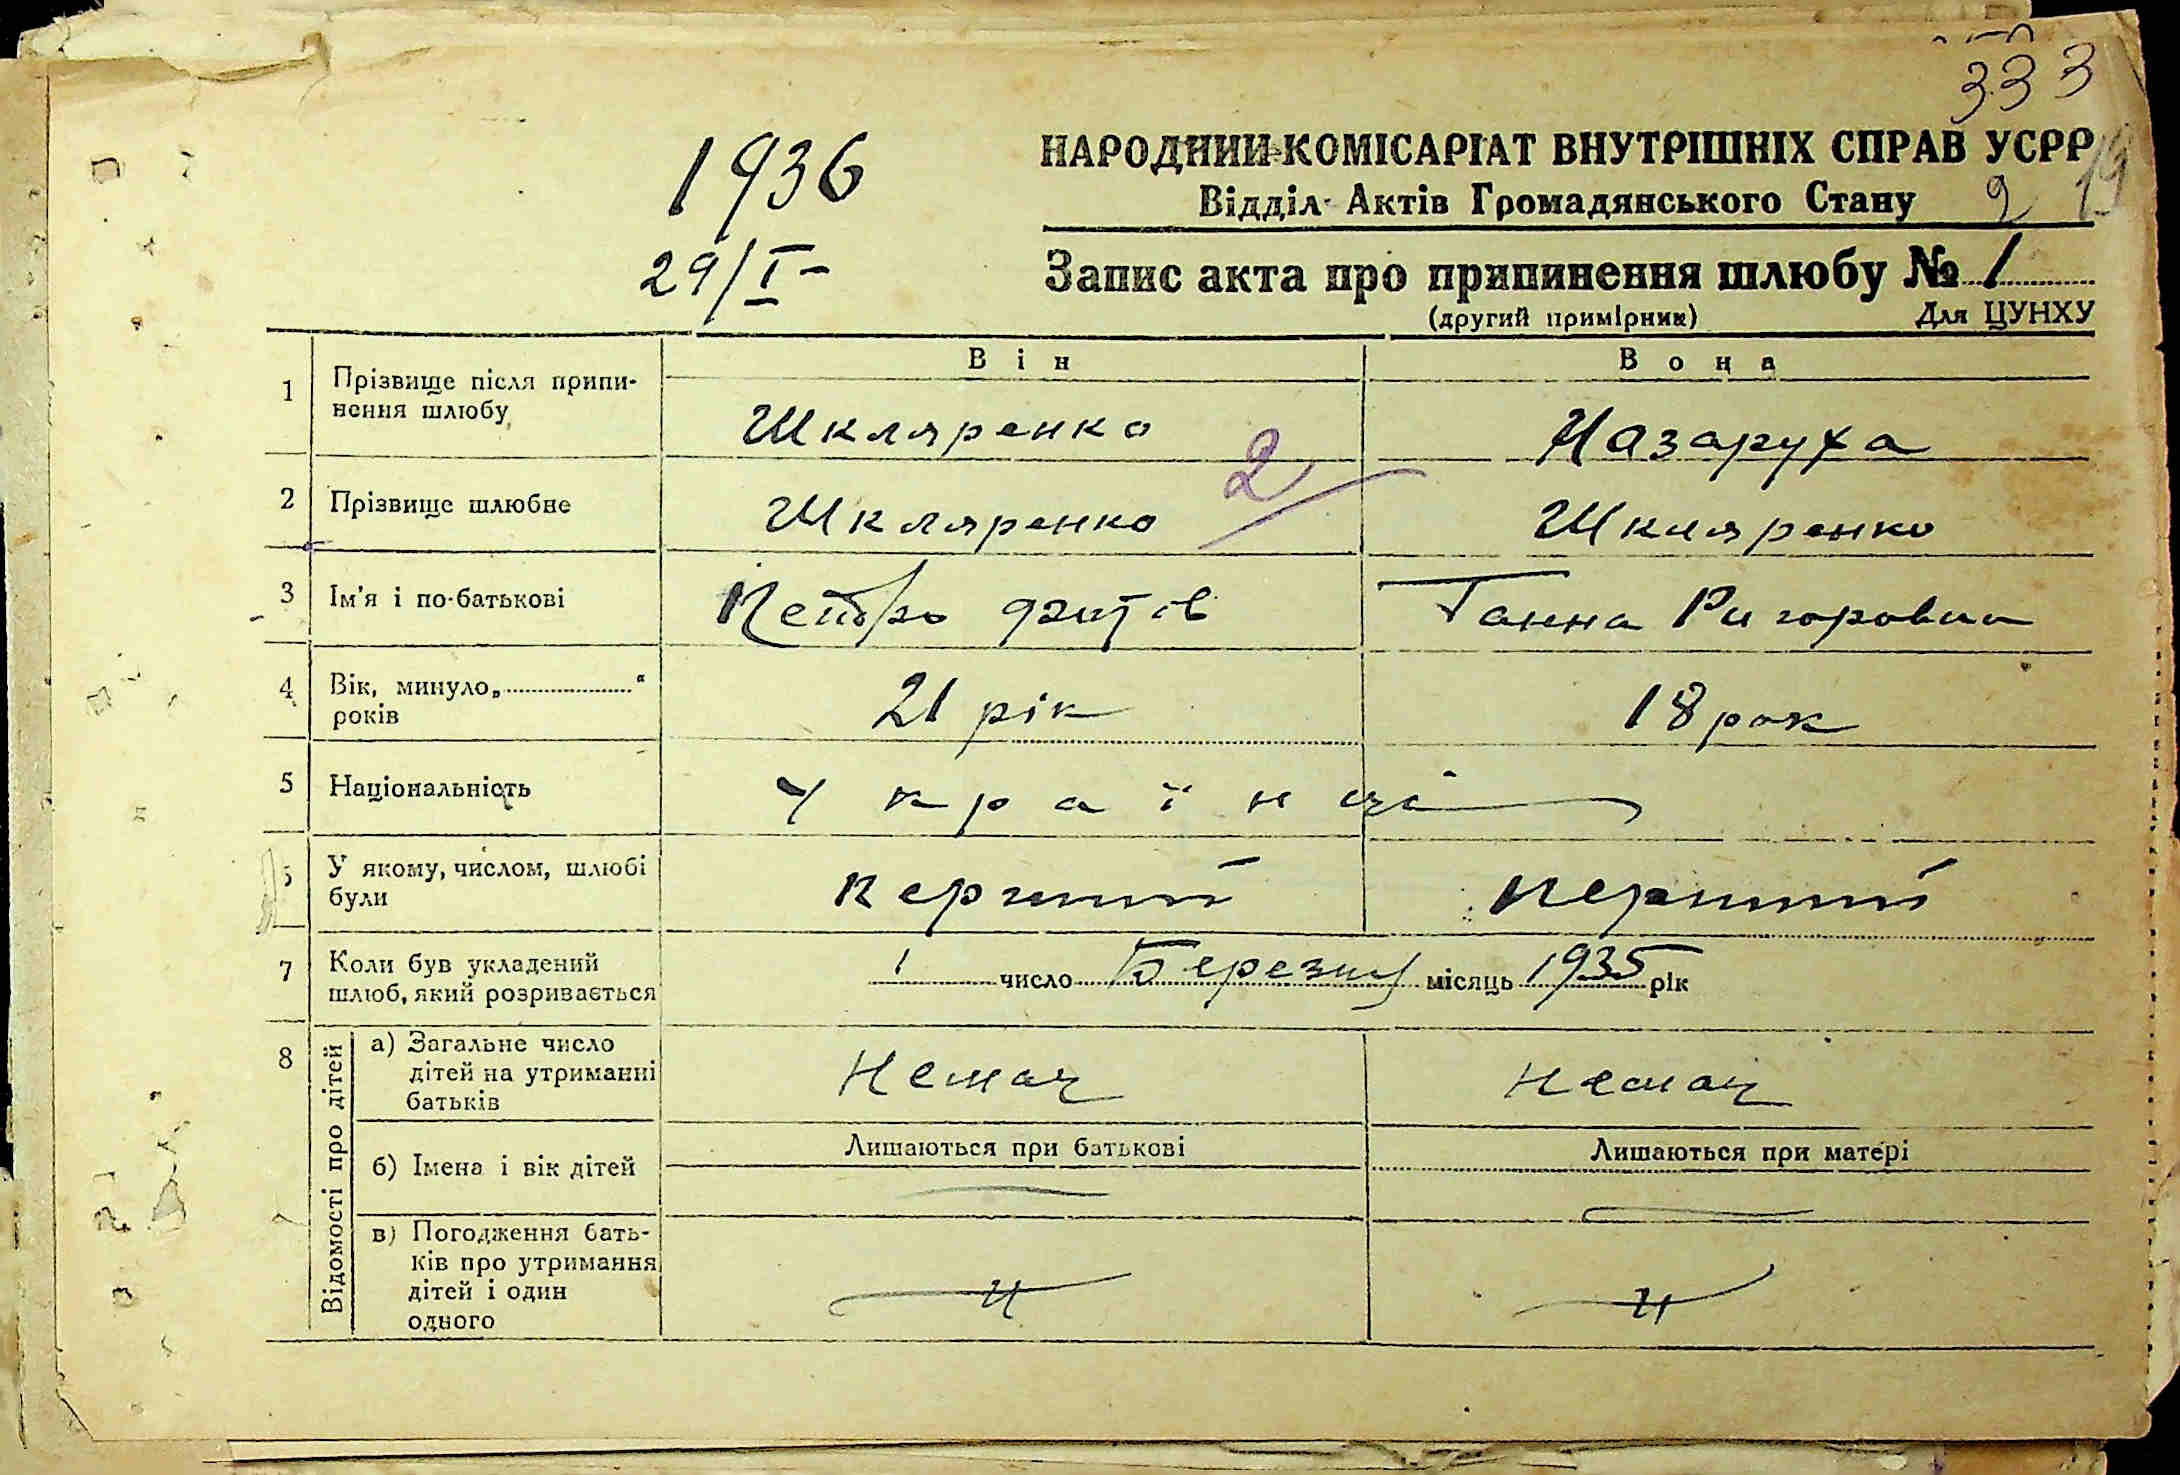 333
19
1936
29/I-
НАРОДНИЙ КОМІСАРІАТ ВНУТРІШНІХ СПРАВ УСРР
Відділ Актів Громадянського Стану 2
Запис акта про припинення шлюбу № 1
(другий примірник) Для ЦУНХУ
Він Вона
1 Прізвище після припи-
нення шлюбу
Шкляренко Назаруха
2 Прізвище шлюбне Шкляренко 2 Шкляренко
3 Ім'я і по-батькові Петро Ганна Ригоровна
4 Вік, минуло „ “
років
21 рік 18 рок
5 Національність Українці
6 У якому, числом, шлюбі
були
перший перший
7 Коли був укладений
шлюб, який розривається
1 число Березня місяць 1935 рік
8 Відомості про дітей
а) Загальне число
дітей на утриманні
батьків
Немає немає
б) Імена і вік дітей
Лишаються при батькові Лишаються при матері
в) Погодження бать-
ків про утримання
дітей і один
одного